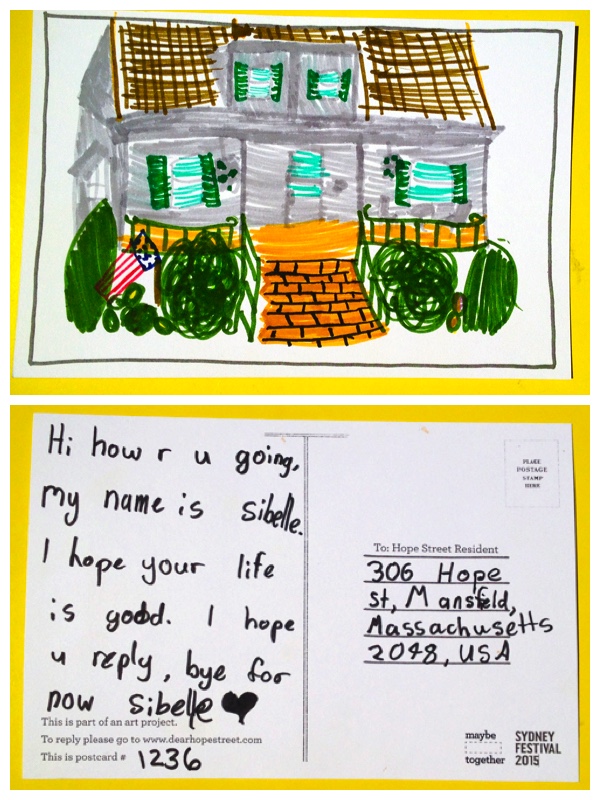 Hi how r u going,
my name is sibelle.
I hope your life
is good. I hope
u reply, bye for
now Sibelle
This is part of an art project.
To reply please go to www.dearhopestreet.com
This is postcard # 1236
PLACE
POSTAGE
STAMP
HERE
To: Hope Street Resident
306 Hope
St, Mansfeld,
Massachusetts
2048, USA
maybe
together
SYDNEY
FESTIVAL
2015